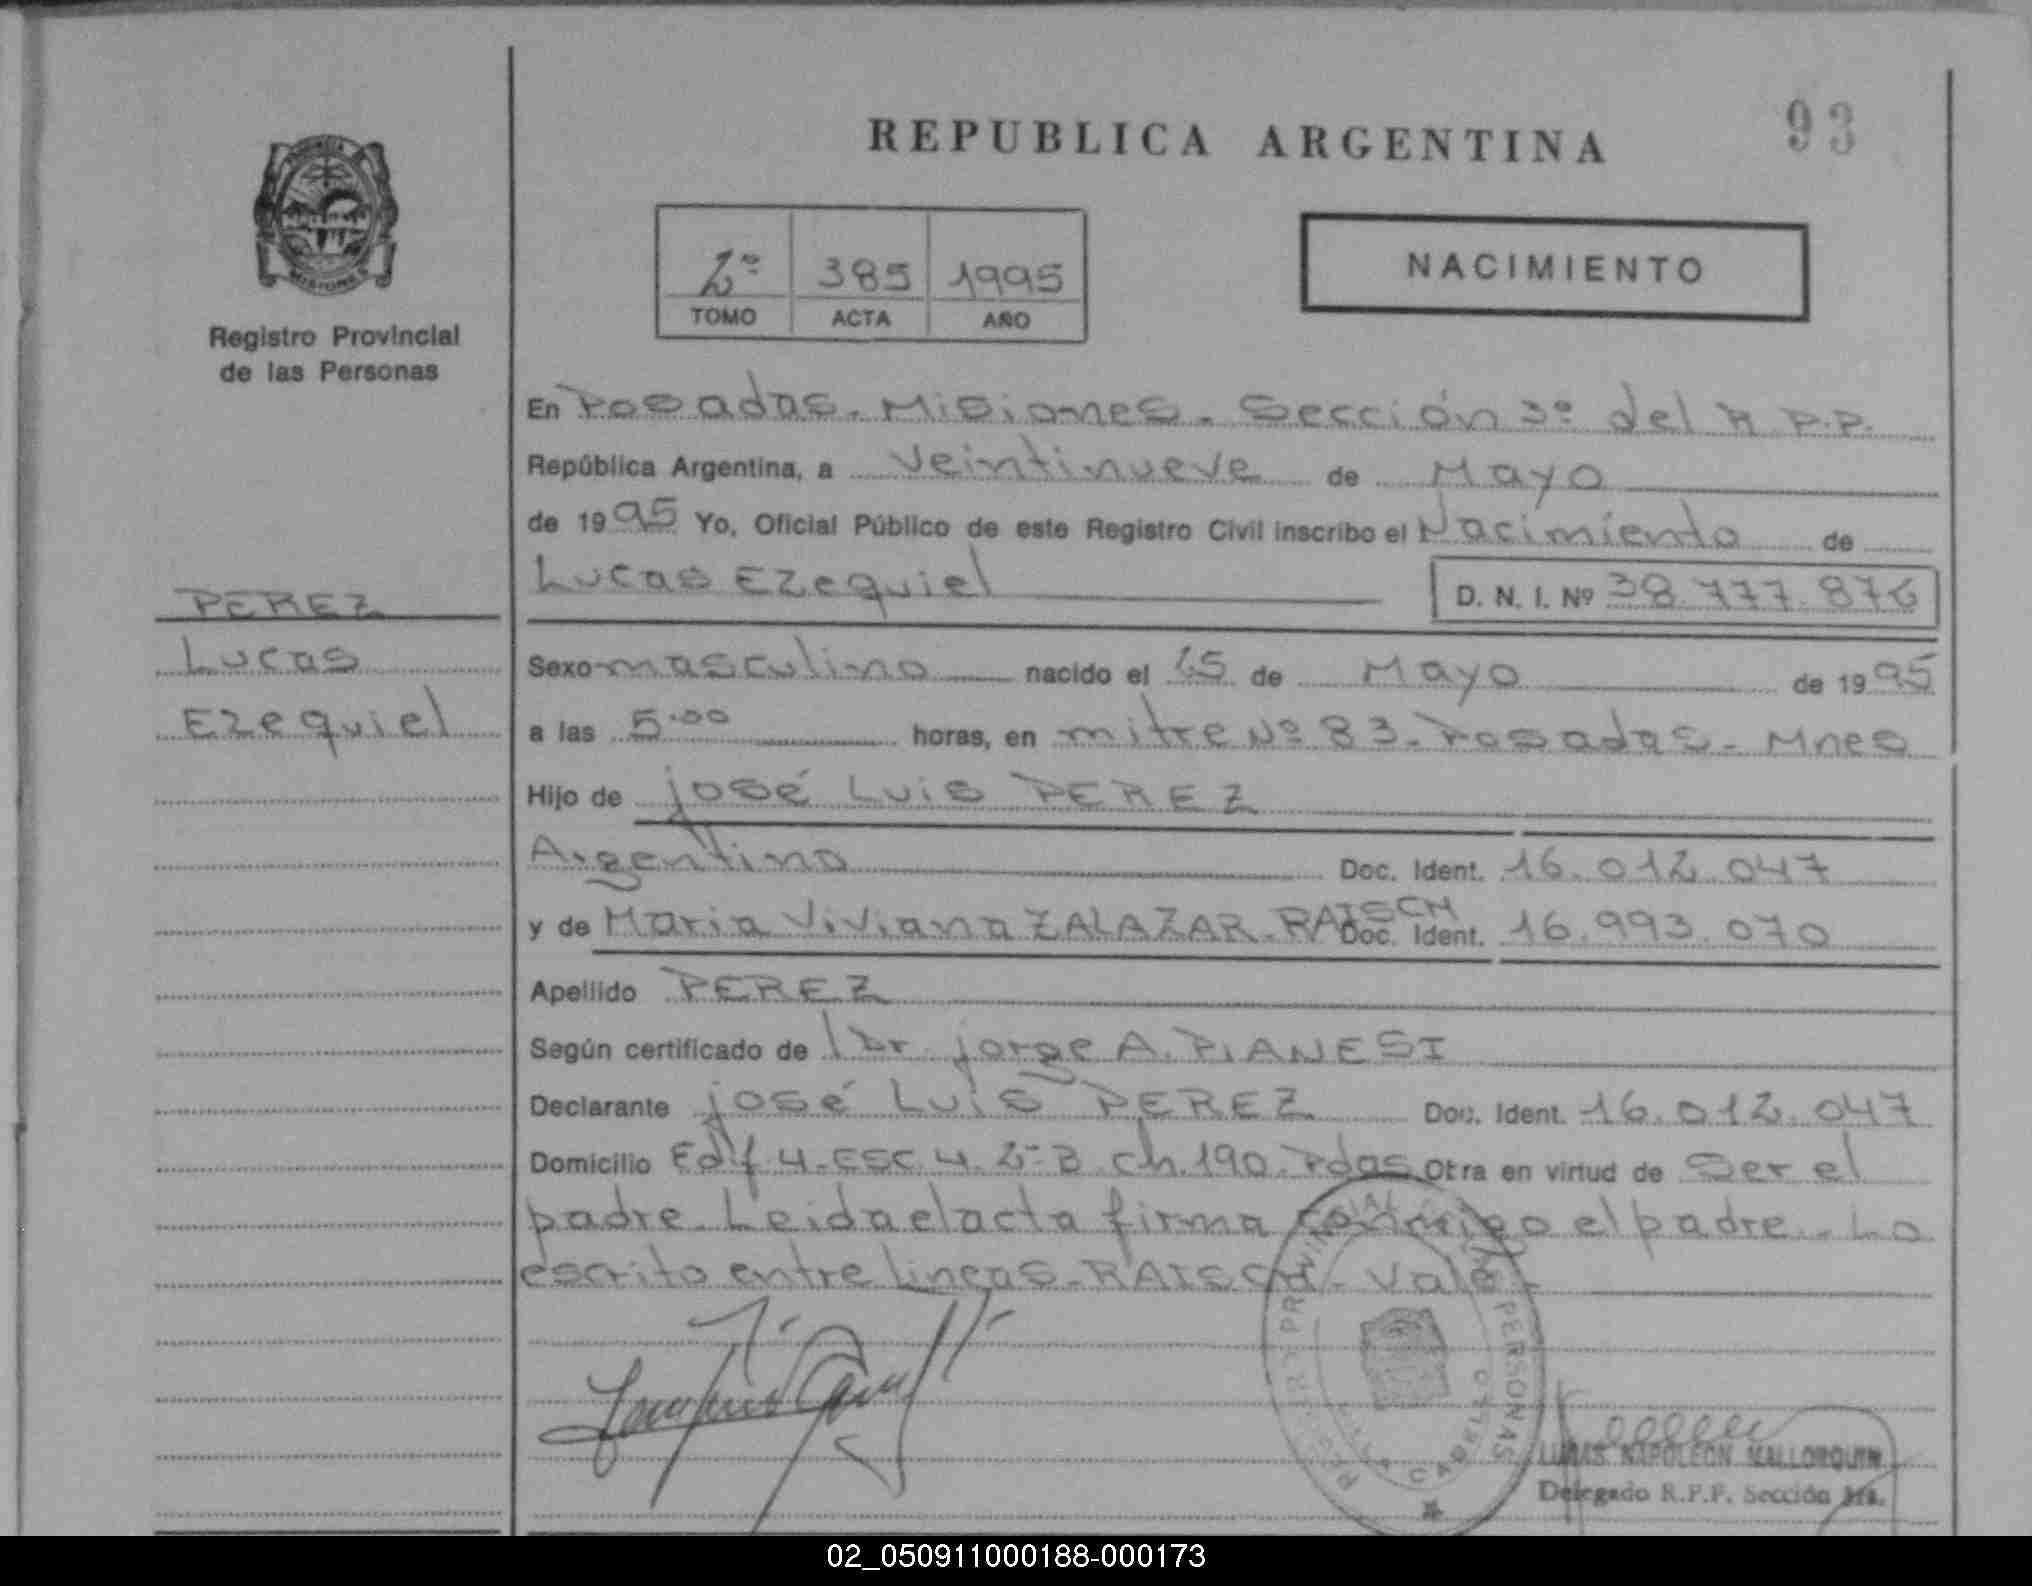 REPUBLICA ARGENTINA
93
PROVINCIA
MISIONES
Registro Provincial
de las Personas
2º 385 1995
TOMO ACTA AÑO
NACIMIENTO
En Posadas - Misiones - Sección 3º del R P.P.
República Argentina, a veintinueve de Mayo
de 1995 Yo, Oficial Público de este Registro Civil inscribo el Nacimiento de
Lucas Ezequiel D. N. I. Nº 38.777.876
PEREZ
Lucas
Ezequiel
Sexo masculino nacido el 25 de Mayo de 1995
a las 5.00 horas, en mitre Nº 83 - Posadas - Mnes
Hijo de josé Luis PEREZ
Argentino Doc. Ident. 16.012.047
y de Maria Viviana ZALAZAR - RAISCH Doc. Ident. 16.993.070
Apellido PEREZ
Según certificado de l Dr jorge A. PIANESI
Declarante josé Luis PEREZ Doc. Ident. 16.012.047
Domicilio Edif 4 - Esc 4 - 2º B ch. 190 - Pdas Otra en virtud de ser el
padre - Leida el acta firma conmigo el padre - Lo
escrito entre lineas - RAISCH - Vale -
PERSONAS
LUCAS NAPOLEON MALLORQUIN
Delegado R.P.P. Sección 3ra.
02_050911000188-000173